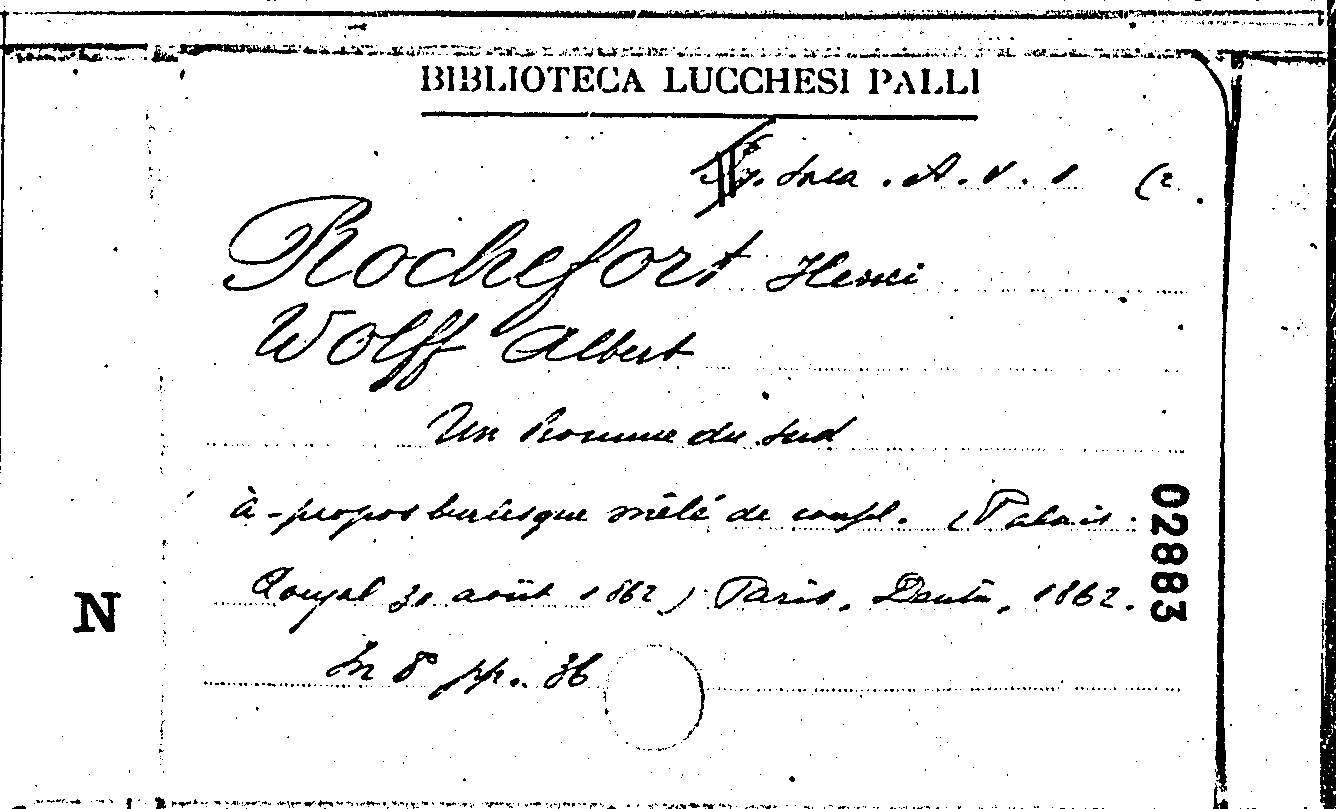 BIBLIOTECA LUCCHESI PALLI
A. V. 1 (2
Rochefort Henri
Wolff Albert
Un homme du sud
à-propos burlesque mêlé de coupl. (Palais
Royal 31 août 1862) Paris, Dentu, 1862.
In 8° pp. 36
N
02883